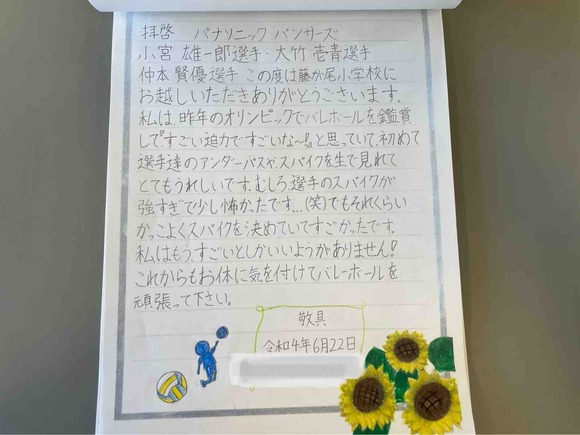 拝啓 パナソニック パンサーズ
小宮 雄一郎選手・大竹 壱青選手
仲本 賢優選手 この度は藤が尾小学校に
お越しいただきありがとうございます。
私は、昨年のオリンピックでバレボールを鑑賞
して「すごい迫力ですごいな〜!」と思っていて、初めて
選手達のアンダーパスやスパイクを生で見れて
とてもうれしいです。むしろ、選手のスパイクが
強すぎで少し怖かったです...(笑)でもそれくらい
かっこよくスパイクを決めていてすごかったです。
私はもう、すごいとしかいいようがありません!
これからもお体に気を付けてバレーボールを
頑張って下さい。
敬具
令和4年6月22日